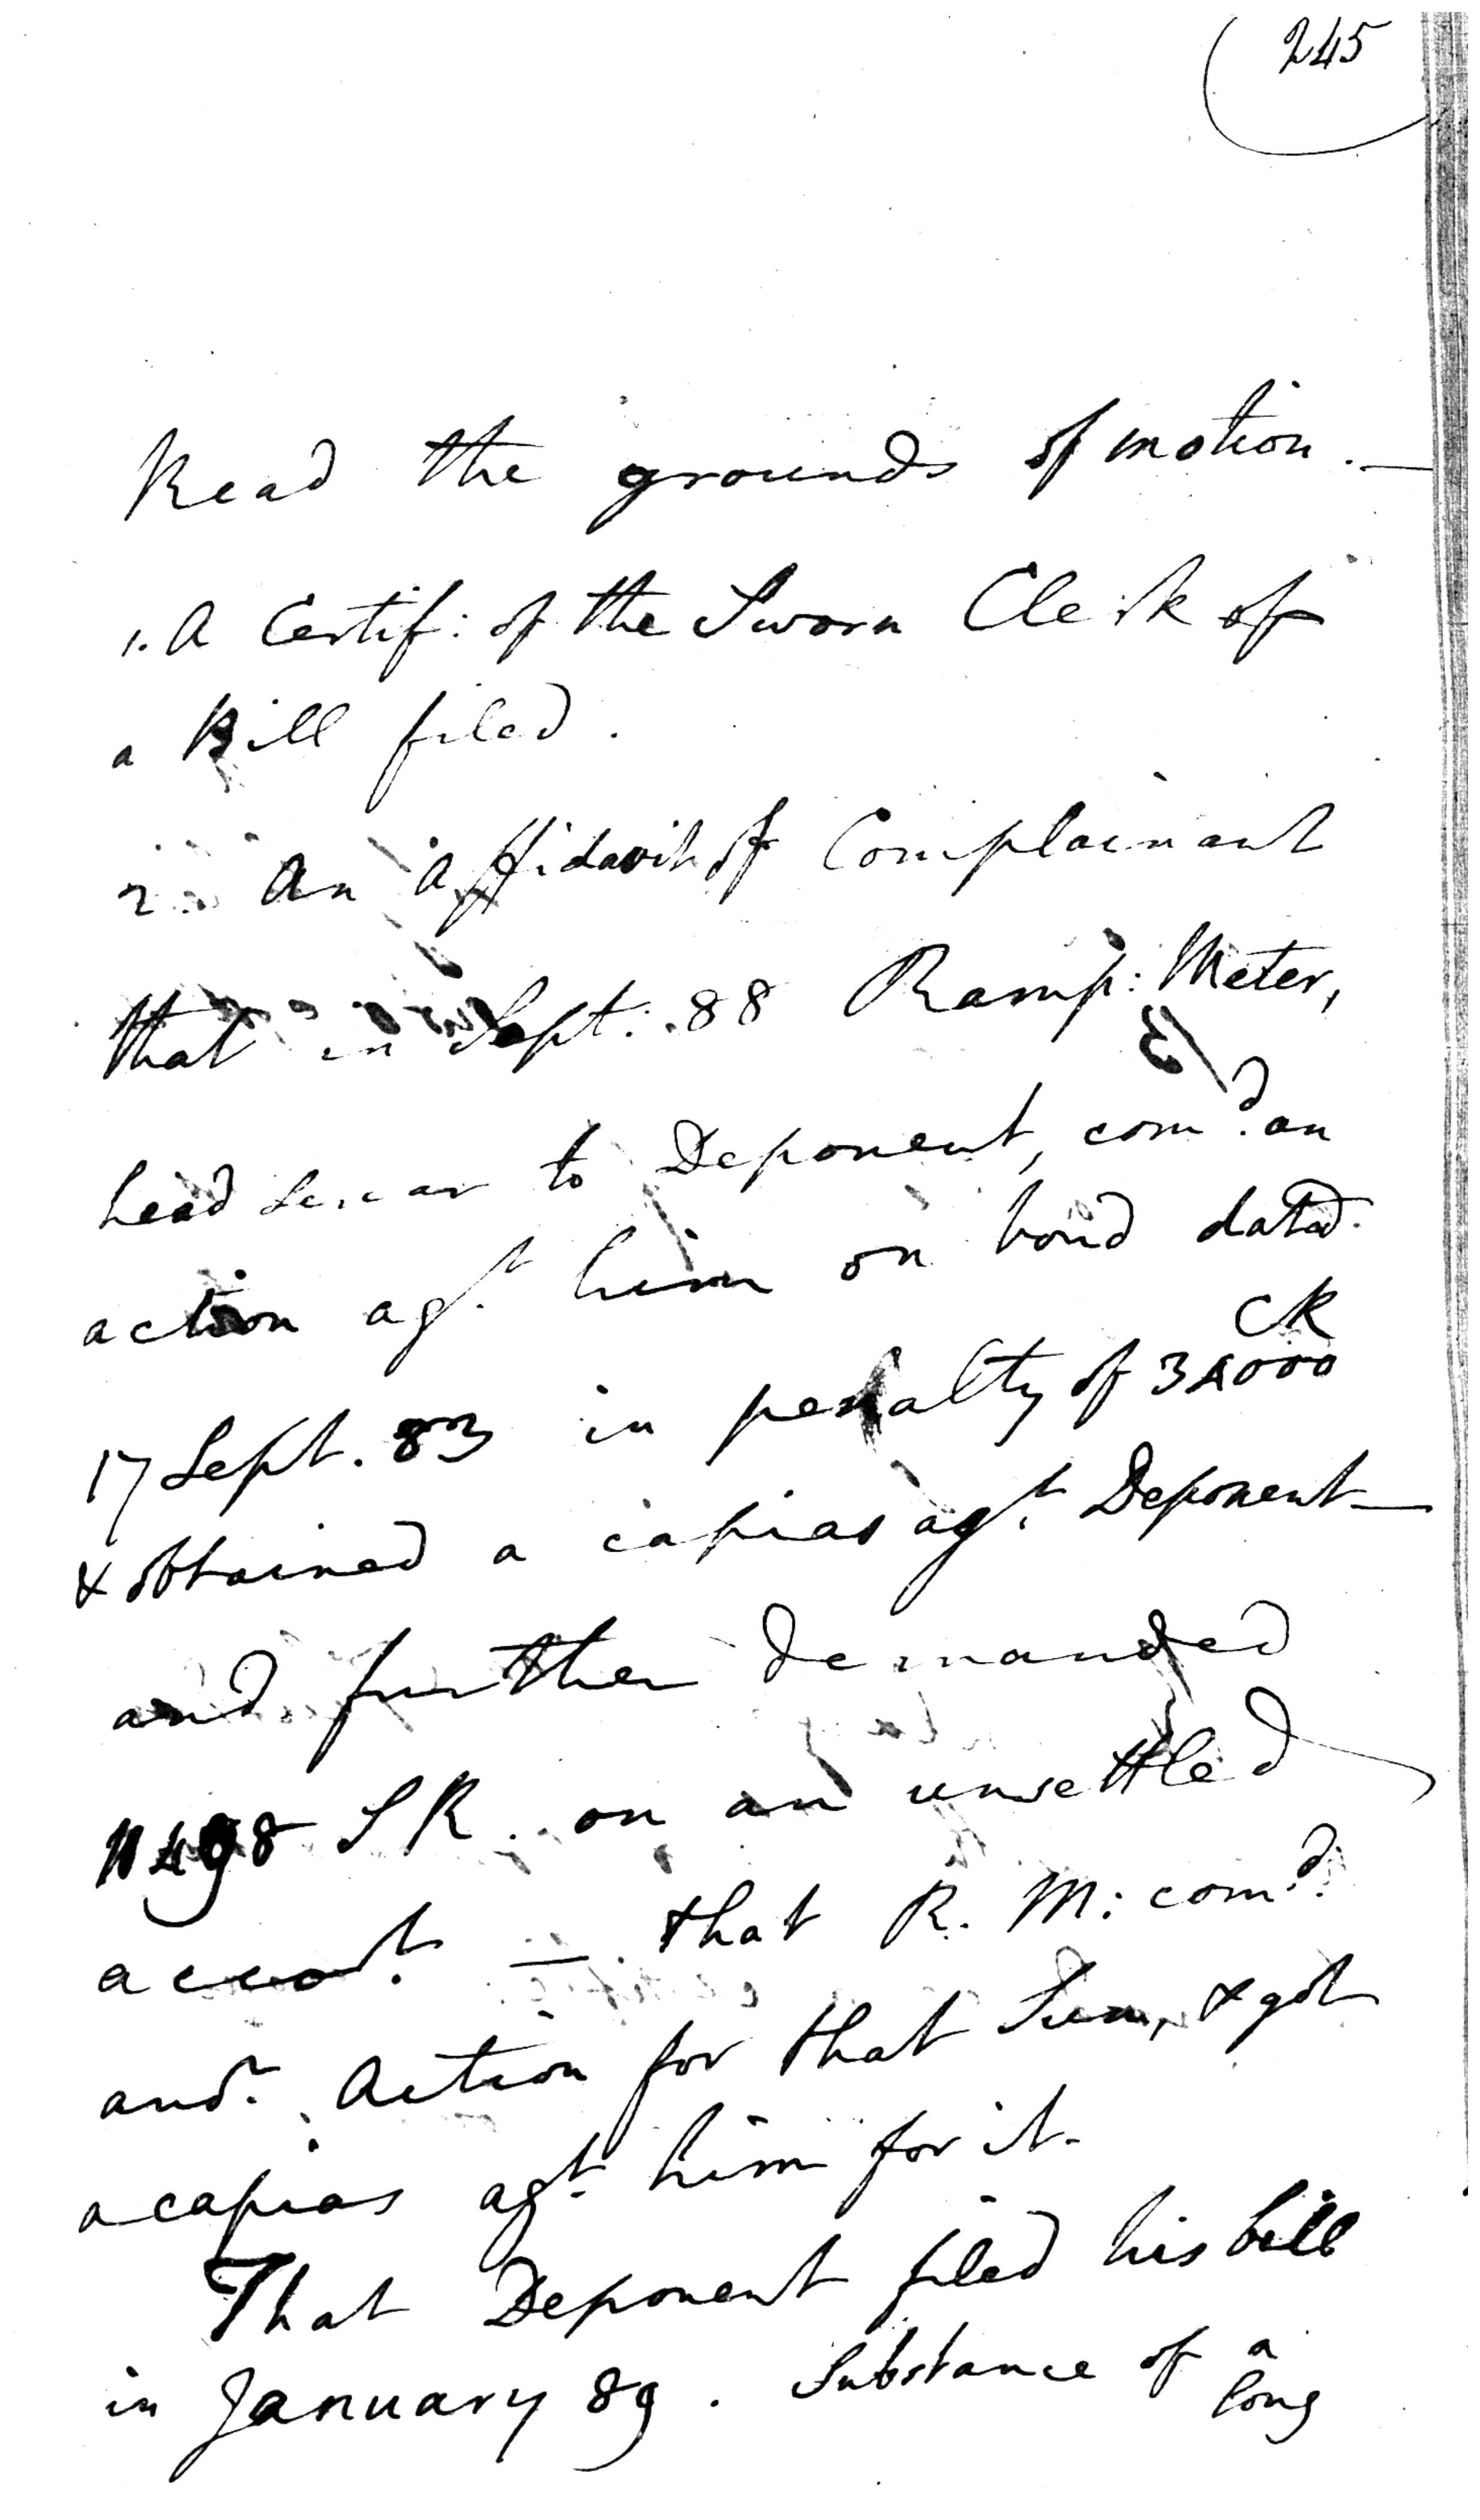 245
Read the grounds of motion. —
1. A Certif: of the Sworn Clerk of
a Bill filed.
2. An Affidavit of Complainant
that in Sept. 88 Ramp: Meter,
head Sircar to Deponent, comd. an
action agt. him on bond dated
17 Sept. 83 in penalty of 34000 CR
& obtained a capias agt. Deponent —
and further demanded
11498 SR. on an unsettled
accot. — that R. M: comd.
anor. Action for that Sum, & got
a capias agt. him for it.
That Deponent filed his bill
in January 89. Substance of a long